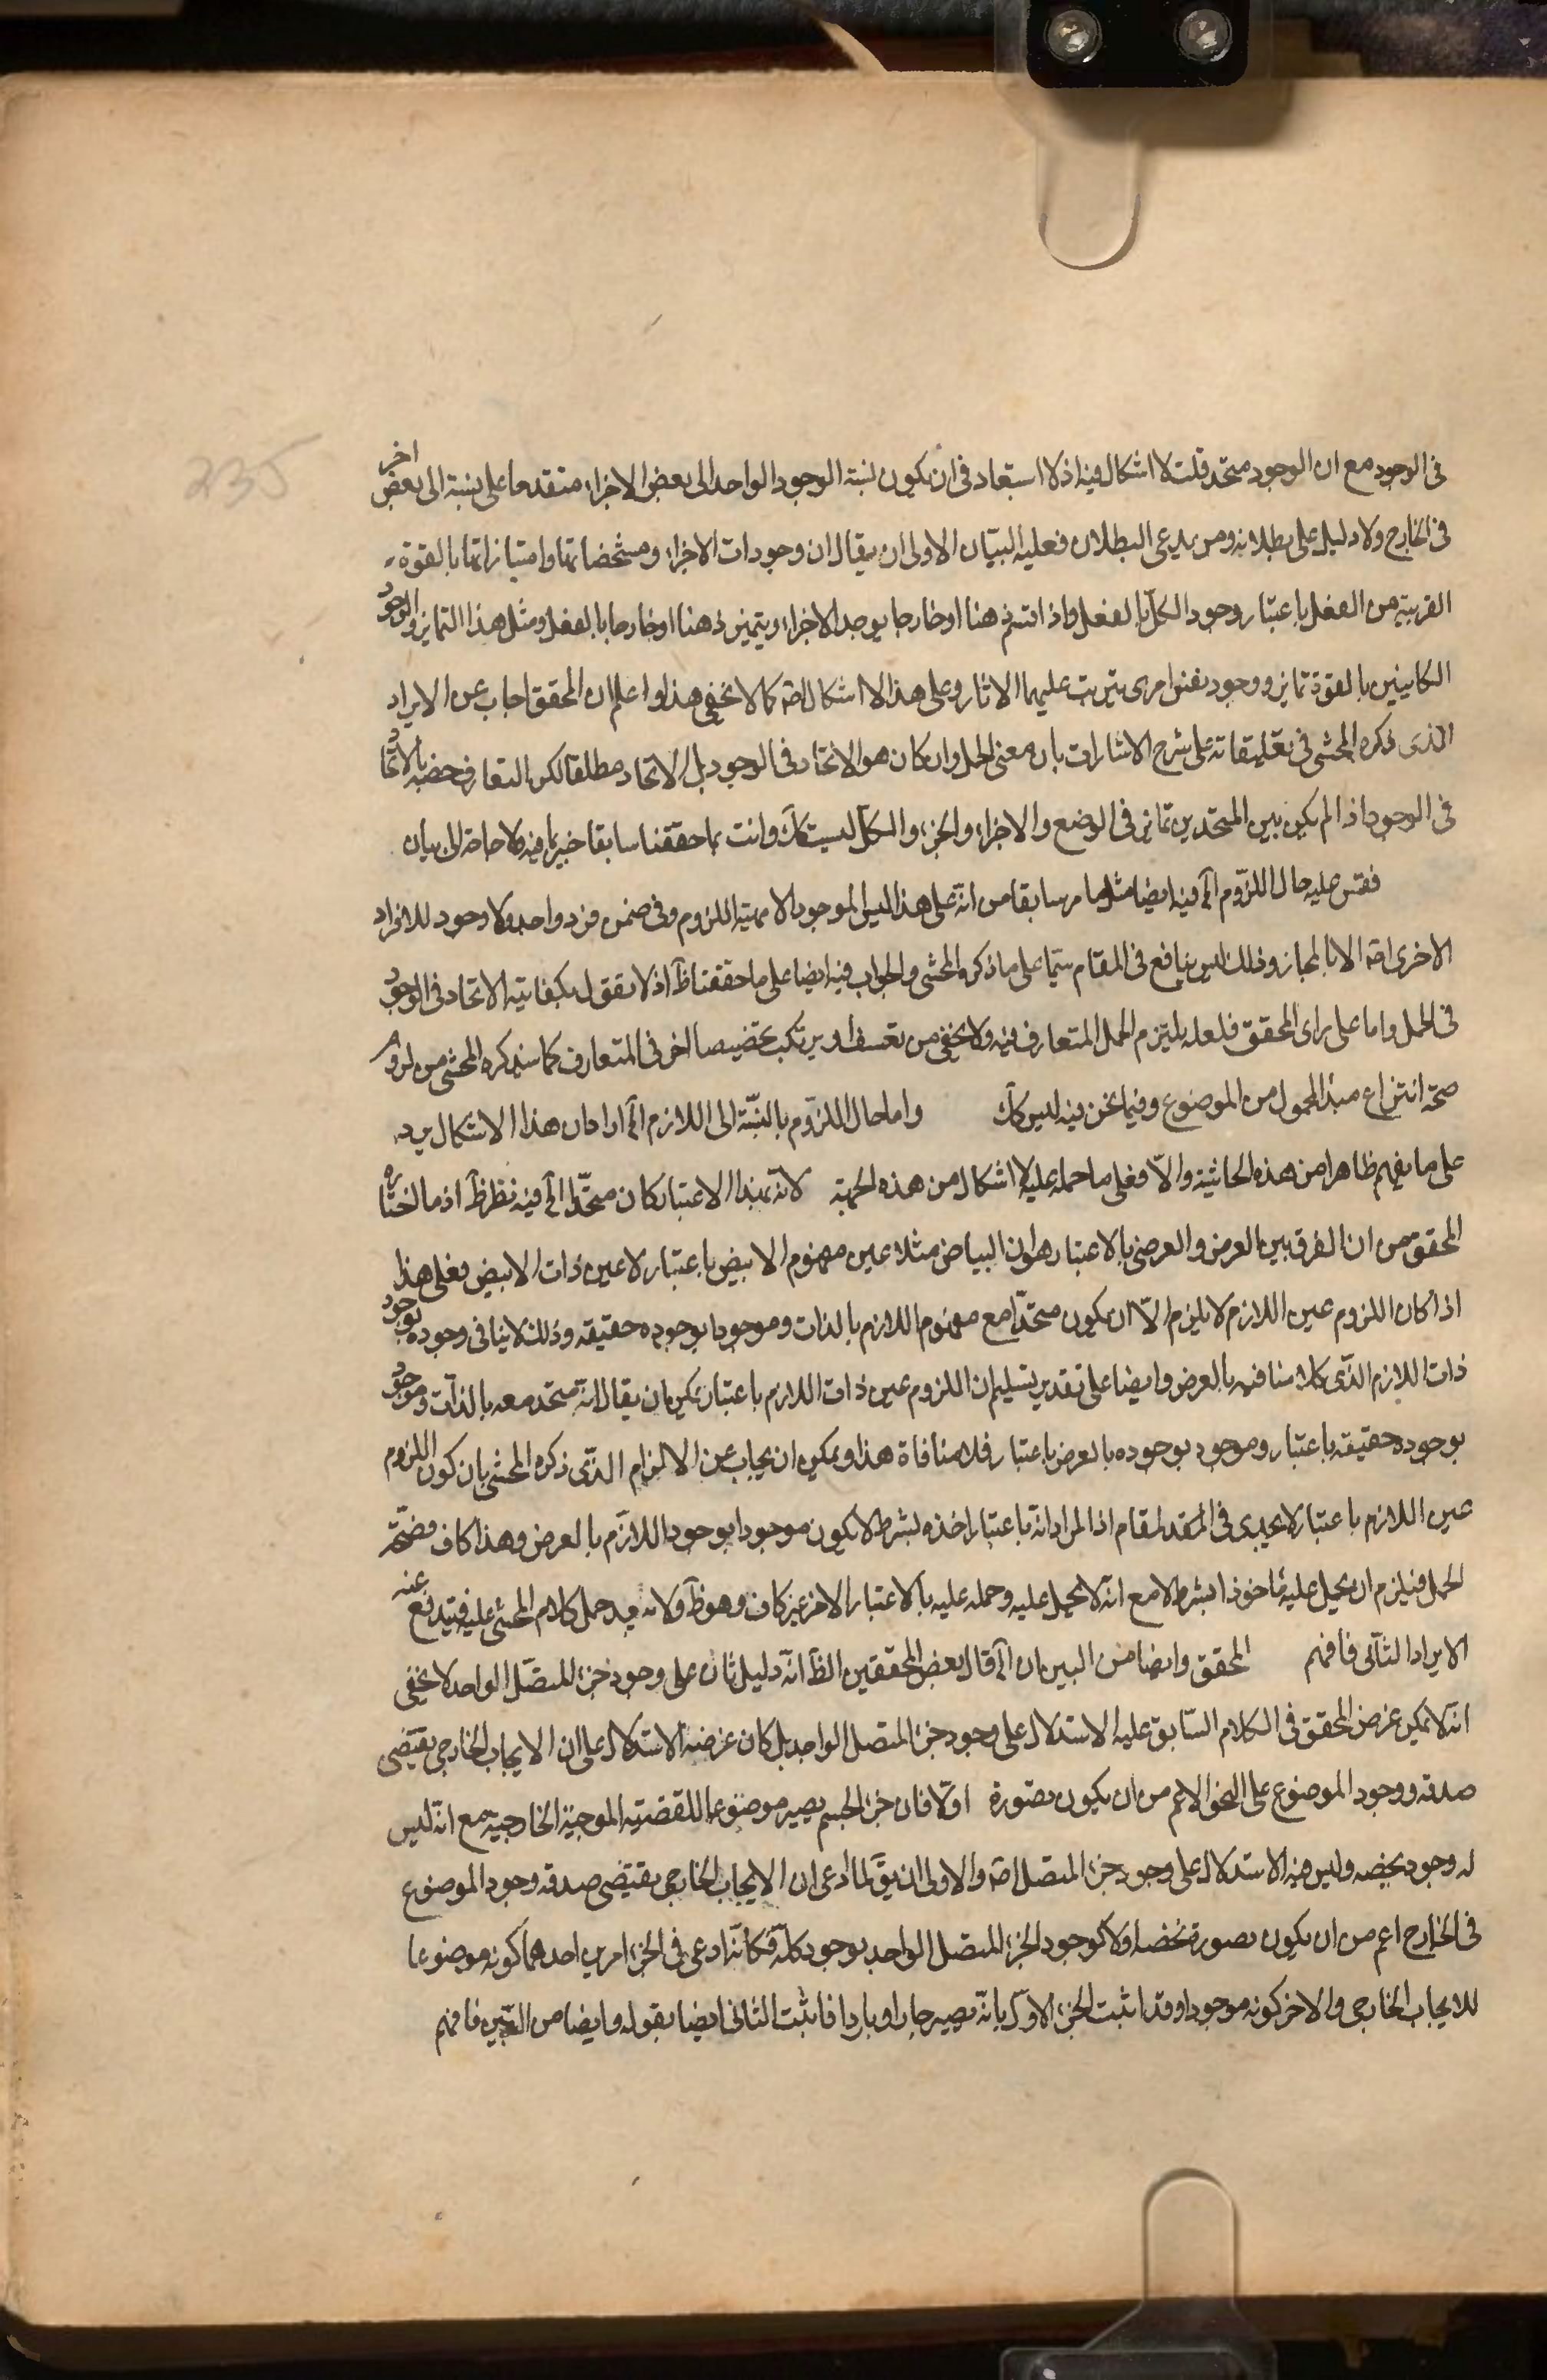 235
فى الوجود مع ان الوجود متحد قلت لا اشكال فيه اذ لا استبعاد فى ان يكون نسبة الوجود الواحد الى بعض الاجزاء متقدما على نسبته الى بعض اخر
فى الخارج ولا دليل على بطلانه ومن يدعى البطلان فعليه البيان الاولى ان يقال ان وجودات الاجزاء ومشخصاتها وامتيازاتها بالقوة
القريبة من الفعل باعتبار وجود الكل بالفعل واذا انقسم ذهنا او خارجا يوجد الاجزاء ويتميز ذهنا او خارجا بالفعل ومثل هذا التمايز والوجود
الكاينين بالقوة تمايز ووجود نفس امرى يترتب عليهما الاثار وعلى هذا لا اشكال اصه كما لا يخفى هذا واعلم ان المحقق اجاب عن الايراد
الذى ذكره المحشى فى تعليقاته على شرح الاشارات بان معنى الحمل وان كان هو الاتحاد فى الوجود بل الاتحاد مطلقا لكن التعارف خصه بالاتحاد
فى الوجود اذا لم يكن بين المتحدين تمايز فى الوضع والاجزاء والجزء والكل ليستا كك وانت بما حققنا سابقا خبير بما فيه فلا حاجة الى بيان
فقس عليه حال اللزوم الخ فيه ايضا مثل ما مر سابقا من انه على هذا ليس الموجود الا مهية اللزوم وفى ضمن فرد واحد ولا وجود للافراد
الاخرى اصه الا بالمجاز وذلك ليس بنافع فى المقام سيما على ما ذكره المحشى والجواب فيه ايضا على ما حققنا ظ اذ لا نقول بكفاية الاتحاد فى الوجود
فى الحمل واما على راى المحقق فلعله يلتزم الحمل المتعارف فيه ولا يخفى من تعسف او يرتكب تخصيصا اخر فى المتعارف كما سيذكره المحشى من لزوم
صحة انتزاع مبدا المحمول من الموضوع وفيما نحن فيه ليس كك واما حال اللزوم بالنسبة الى اللازم الخ اراد ان هذا الاشكال يرد
على ما يفهم ظاهرا من هذه الحاشية والا فعلى ما حمله عليه لا اشكال من هذه الجهة لانه بهذا الاعتبار كان متحدا الخ فيه نظر ظ اذ ما اختاره
المحقق من ان الفرق بين العرض والعرضى بالاعتبار هو ان البياض مثلا عين مفهوم الابيض باعتبار لا عين ذات الابيض فعلى هذا
اذا كان اللزوم عين اللازم لا يلزم الا ان يكون متحدا مع مفهوم اللازم بالذات وموجودا بوجوده حقيقة وذلك لا ينافى وجوده بوجود
ذات اللازم الذى كلامنا فيه بالعرض وايضا على تقدير تسليم ان اللزوم عين ذات اللازم باعتبار يمكن ان يقال انه متحد معه بالذات وموجود
بوجوده حقيقة باعتبار وموجود بوجوده بالعرض باعتبار فلا منافاة هذا ويمكن ان يجاب عن الالزام الذى ذكره المحشى بان كون اللزوم
عين اللازم باعتبار لا يجدى فى المقام اذ المراد انه باعتبار اخذه بشرط لا يكون موجودا بوجود اللازم بالعرض وهذا كاف فى صحة
الحمل فيلزم ان يحمل عليه ماخوذا بشرط لا مع انه لا يحمل عليه وحمله عليه بالاعتبار الاخر غير كاف وهو ظ ولا بعد حمل كلام المحشى عليه فيندفع عنه
الايراد الثانى فافهم المحقق وايضا من البين ان الخ قال بعض المحققين الظ انه دليل ثان على وجود جزء المتصل الواحد لا يخفى
انه لا يمكن غرض المحقق فى الكلام السابق عليه الاستدلال على وجود جزء المتصل الواحد بل كان غرضه الاستدلال على ان الايجاب الخارجى يقتضى
صدقه ووجود الموضوع على النحو الاعم من ان يكون بصورة اولا فان جزء الجسم يصير موضوعا للقضية الموجبة الخارجية مع انه ليس
له وجود يخصه وليس فيه الاستدلال على وجود جزء المتصل اصه والاولى ان يق لما ادعى ان الايجاب الخارجى يقتضى صدقه وجود الموضوع
فى الخارج اعم من ان يكون بصورة تخصه اولا كوجود الجزء المتصل الواحد بوجود كله فكانه ادعى فى الجزء امرين احدهما كونه موضوعا
للايجاب الخارجى والاخر كونه موجودا وقد اثبت الجزء الاول بانه يصير حارا او باردا فاثبت الثانى ايضا بقوله وايضا من البين فافهم